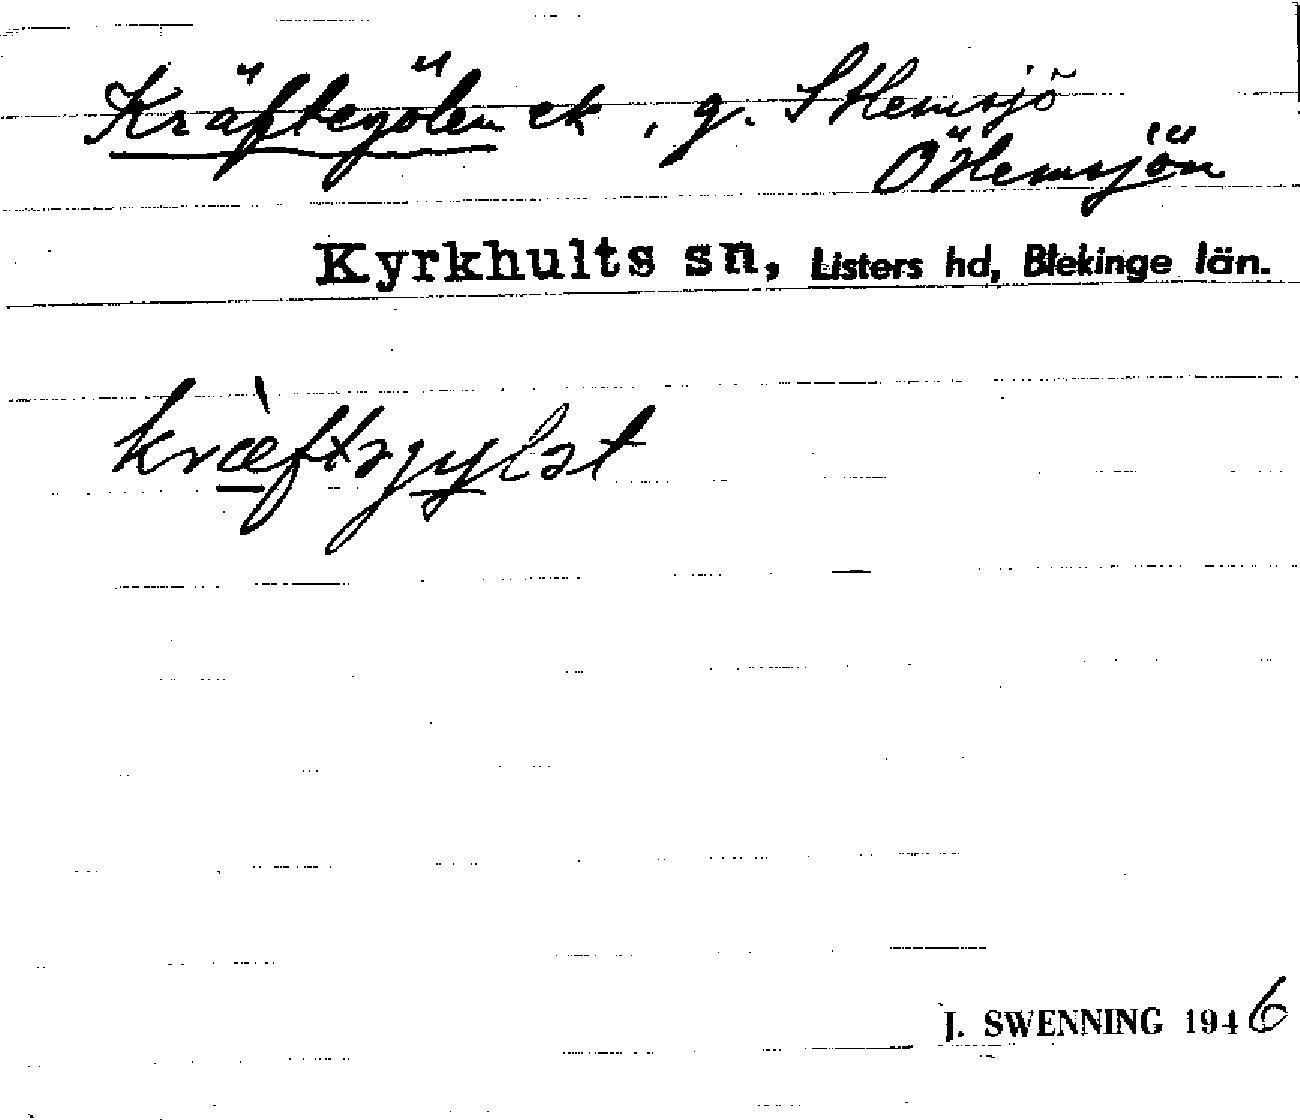 Kräftegölen ek, g. S Hemsjö
Ö Hemsjön
Kyrkhults sn, Listers hd, Blekinge län.
kræ̀ftəgylət
J. SWENNING 1946